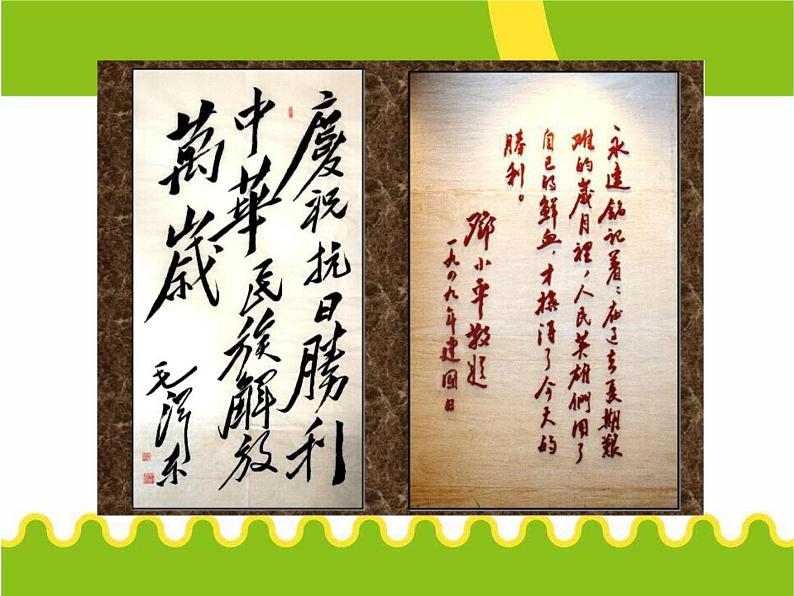 慶祝抗日勝利
中華民族解放
萬歲
毛泽东
永遠銘記着：在过去長期艱
難的歲月裡，人民英雄們用了
自己的鮮血，才換得了今天的
勝利。
鄧小平敬題
一九四九年建國日